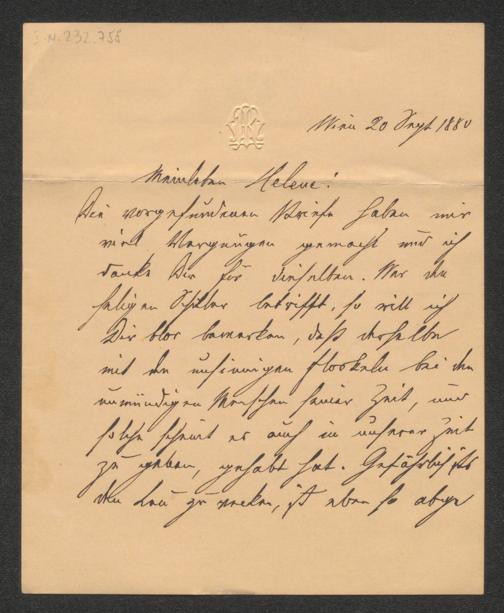 I.N. 232.758
Wien 20 Sept 1880
Mein lieben Helene!
Die vorgefundenen Briefe haben mir
viel Vergnügen gemacht und ich
danke Dir für dieselben. Was den
seligen Schiller betrifft, so will ich
Dir blos bemerken, daß derselbe
mit den unsinnigen Floskeln bei den
unmündigen Menschen seiner Zeit, und
solche scheint es auch in unserer Zeit
zu geben, gehabt hat. Gefährlich ists
den Leu zu wecken, ist eben so abge